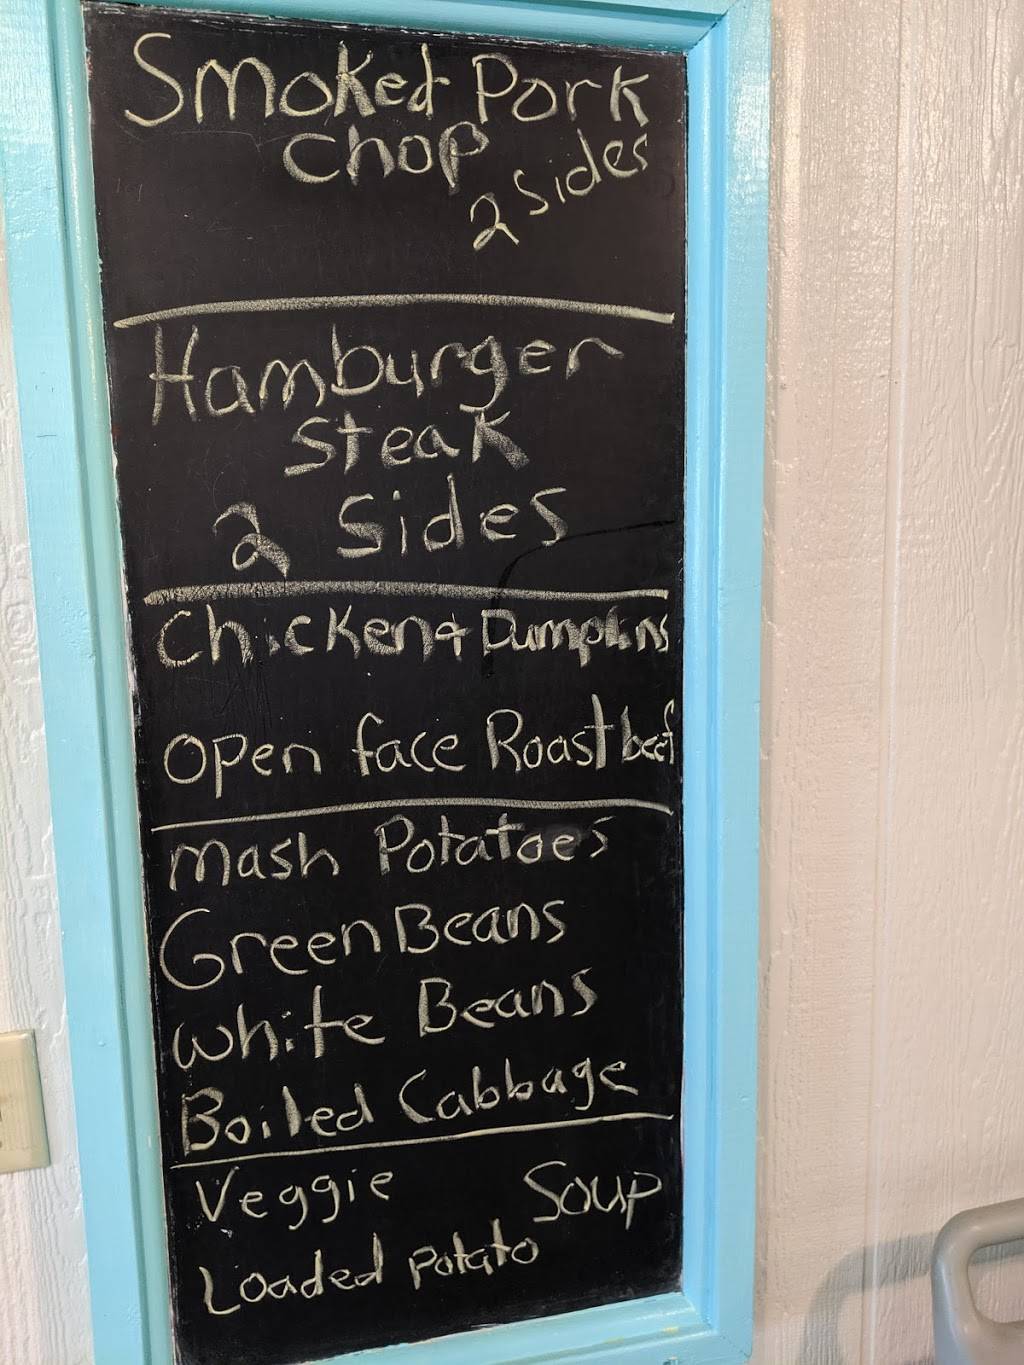 Smoked Pork
Chop
2 Sides
Hamburger
Steak
2 Sides
Chicken & Dumplins
Open face Roast beef
Mash Potatoes
Green Beans
White Beans
Boiled Cabbage
Veggie Soup
Loaded potato